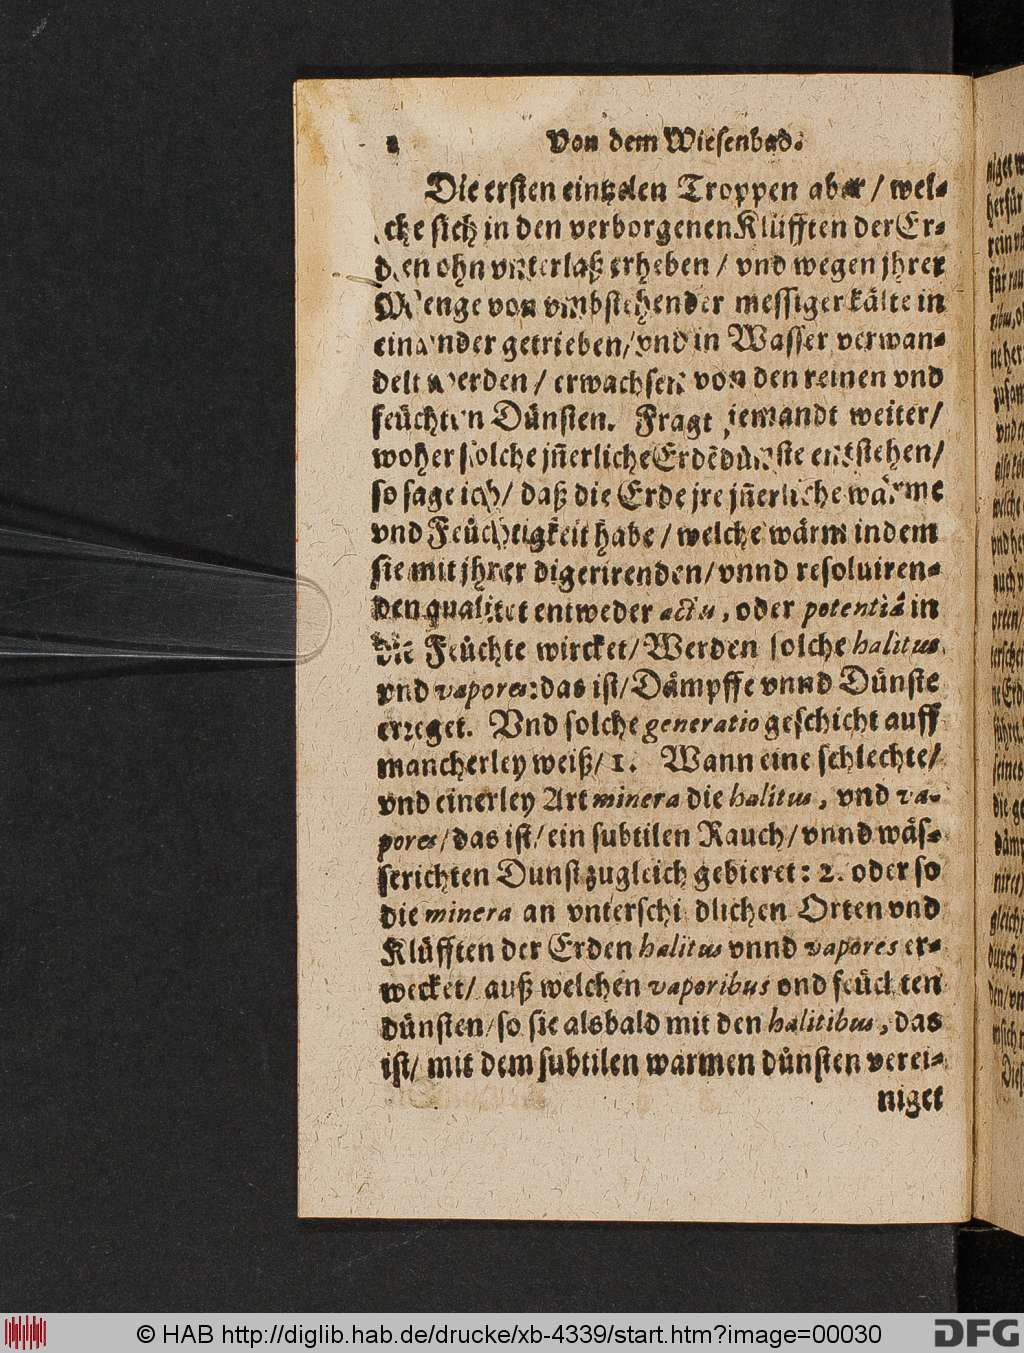 8 Von dem Wiesenbad.
Die ersten eintzelen Troppen aber / wel-
che sich in den verborgenen Klüfften der Er-
den ohn vnterlaß erheben / vnd wegen jhrer
Menge von vmbstehender messiger kälte in
einander getrieben / vnd in Wasser verwan-
delt werden / erwachsen von den reinen vnd
feüchten Dünsten. Fragt jemandt weiter /
woher solche jñerliche Erdēdünste entstehen /
so sage ich / daß die Erde jre jñerliche wärme
vnd Feüchtigkeit habe / welche wärm indem
sie mit jhrer digerirenden / vnnd resoluiren-
den qualitet entweder actu, oder potentiâ in
die Feüchte wircket / Werden solche halitus
vnd vapores: das ist / Dämpffe vnnd Dünste
erreget. Vnd solche generatio geschicht auff
mancherley weiß / 1. Wann eine schlechte /
vnd einerley Art minera die halitus, vnd va-
pores / das ist / ein subtilen Rauch / vnnd wäs-
serichten Dunst zugleich gebieret: 2. oder so
die minera an vnterschidlichen Orten vnd
Klüfften der Erden halitus vnnd vapores er-
wecket / auß welchen vaporibus ond feüchten
dünsten / so sie alsbald mit den halitibus, das
ist / mit dem subtilen warmen dünsten verei-
niget
© HAB http://diglib.hab.de/drucke/xb-4339/start.htm?image=00030
DFG